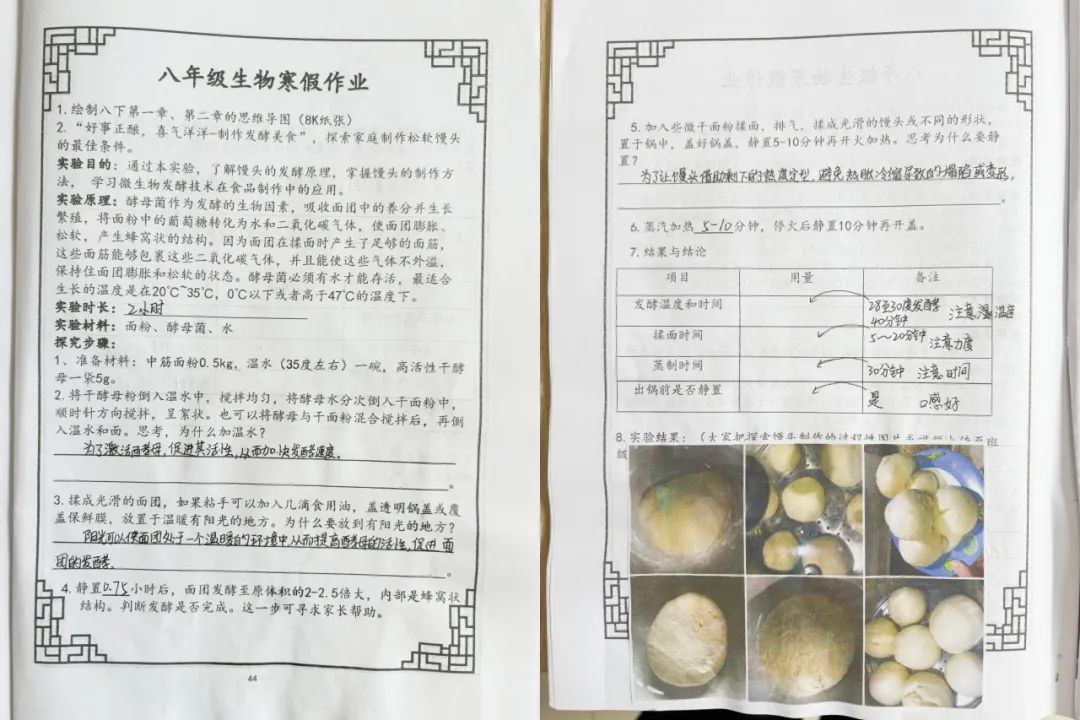 八年级生物寒假作业
1.绘制八下第一章、第二章的思维导图（8K纸张）
2.“好事正酿，喜气洋洋-制作发酵美食”，探索家庭制作松软馒头
的最佳条件。
实验目的：通过本实验，了解馒头的发酵原理，掌握馒头的制作方
法， 学习微生物发酵技术在食品制作中的应用。
实验原理：酵母菌作为发酵的生物因素，吸收面团中的养分并生长
繁殖，将面粉中的葡萄糖转化为水和二氧化碳气体，使面团膨胀、
松软，产生蜂窝状的结构。因为面团在揉面时产生了足够的面筋，
这些面筋能够包裹这些二氧化碳气体，并且能使这些气体不外溢，
保持住面团膨胀和松软的状态。酵母菌必须有水才能存活，最适合
生长的温度是在20℃~35℃，0℃以下或者高于47℃的温度下。
实验时长：2小时
实验材料：面粉、酵母菌、水
探究步骤：
1、准备材料：中筋面粉0.5kg，温水（35度左右）一碗，高活性干酵
母一袋5g。
2.将干酵母粉倒入温水中，搅拌均匀，将酵母水分次倒入干面粉中，
顺时针方向搅拌，呈絮状。也可以将酵母与干面粉混合搅拌后，再倒
入温水和面。思考，为什么加温水？
为了激活酵母，促进其活性，从而加快发酵速度。
。
3.揉成光滑的面团，如果粘手可以加入几滴食用油，盖透明锅盖或覆
盖保鲜膜，放置于温暖有阳光的地方。为什么要放到有阳光的地方？
阳光可以使面团处于一个温暖的环境中，从而提高酵母的活性，促进 面
团的发酵。
。
4.静置0.75小时后，面团发酵至原体积的2-2.5倍大，内部是蜂窝状
结构。判断发酵是否完成。这一步可寻求家长帮助。
44
5.加入些微干面粉揉面，排气，揉成光滑的馒头或不同的形状，
置于锅中，盖好锅盖、静置5-10分钟再开火加热。思考为什么要静
置？
为了让馒头借助剩下的热度定型，避免热胀冷缩导致的塌陷或变形。
。
6.蒸汽加热5-10分钟，停火后静置10分钟再开盖。
7.结果与结论
项目 用量 备注
发酵温度和时间 28至30度发酵 40分钟 注意湿温度
揉面时间 5～20分钟 注意力度
蒸制时间 30分钟 注意时间
出锅前是否静置 是 口感好
8.实验结果：（大家把探索馒头制作的过程性图片或视频上传至班
级